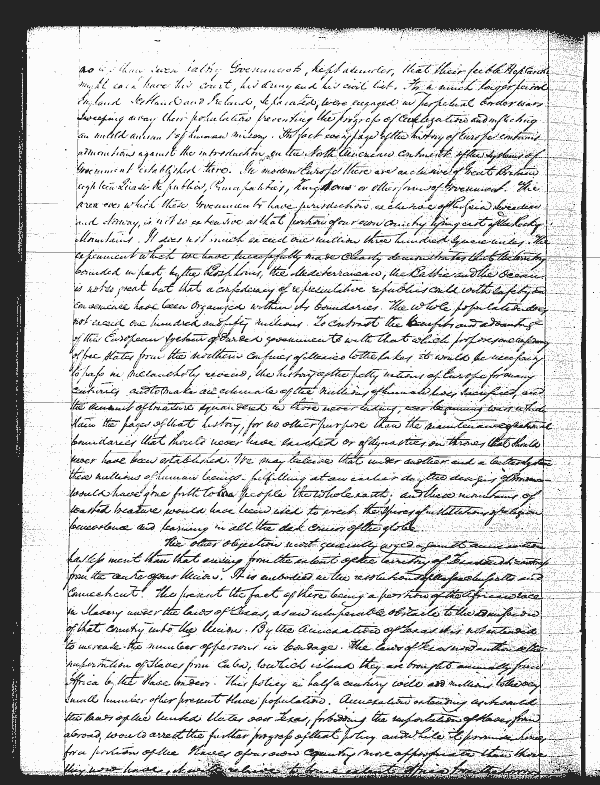 Governments, kept asunder, that their feeble Heptarchy
might each have his court, his army and his civil list. For a much longer period
England Scotland and Ireland, separated, were engaged in perpetual border wars
sweeping away their population preventing the progress of civilization and inflicting
an untold amount of human misery. In fact every page of the history of Europe contains
admonitions against the introduction, on the North American continent, of the systems of
Government established there. In modern Europe there are exclusive of Great Britain
eighteen Republics, Principalities, Kingdoms or other forms of Government. The
area over which these Governments have jurisdiction, exclusive of Russia Sweden
and Norway, is not so extensive as that portion of our own country lying east of the Rocky
Mountains. It does not much exceed one million three hundred square miles. The
experiment which we have successfully made clearly demonstrates that the territory
bounded in part by the Bosphorus, the Mediterranean, the Baltic and the Ocean
is not so great but that a confederacy of representative republics could with safety and
convenience have been organized within its boundaries. The whole population does
not exceed one hundred and fifty millions. To contrast the benefits and advantages
of the European system of government with that which proposes a confederacy
of free States from the northern confines of Mexico to the lakes it would be necessary
to pass in melancholy review, the history of the petty nations of Europe for many
centuries and to make an estimate of the millions of human lives sacrificed, and
the amount of treasure squandered in those never ending, ever beginning wars which
stain the pages of that history, for no other purpose than the maintenance of national
boundaries that should never have existed or of dynasties on thrones that should
never have been established. We may believe that under another and a better system
these millions of human beings fulfilling at an earlier day the designs of
would have gone forth to the people the whole earth, and these mountains of
wasted treasure would have been used to erect the of institutions of religion
benevolence and learning in all the dark corners of the globe.
The other objection most generally urged against annexation
has less merit than that arising from the extent of the territory of Texas its
from the centre of our Union. It is embodied in the resolutions and
Connecticut. They present the fact of there being a portion of the African race
in Slavery under the laws of Texas, as an insuperable obstacle to the admission
of that country into the Union. By the Annexation of Texas it is not intended
to increase the number of persons in bondage. The laws of Texas now authorize the
importation of Slaves from Cuba, to which island they are brought annually from
Africa by the Slave traders. This policy in half a century will add millions to the very
small number of her present Slave population. Annexation extending as it would
the laws of the United States over Texas, forbidding the importation of Slaves from
abroad, would arrest the further progress of that policy and while it provides homes
for a portion of the Slaves of our own Country more appropriate than those
they now have,